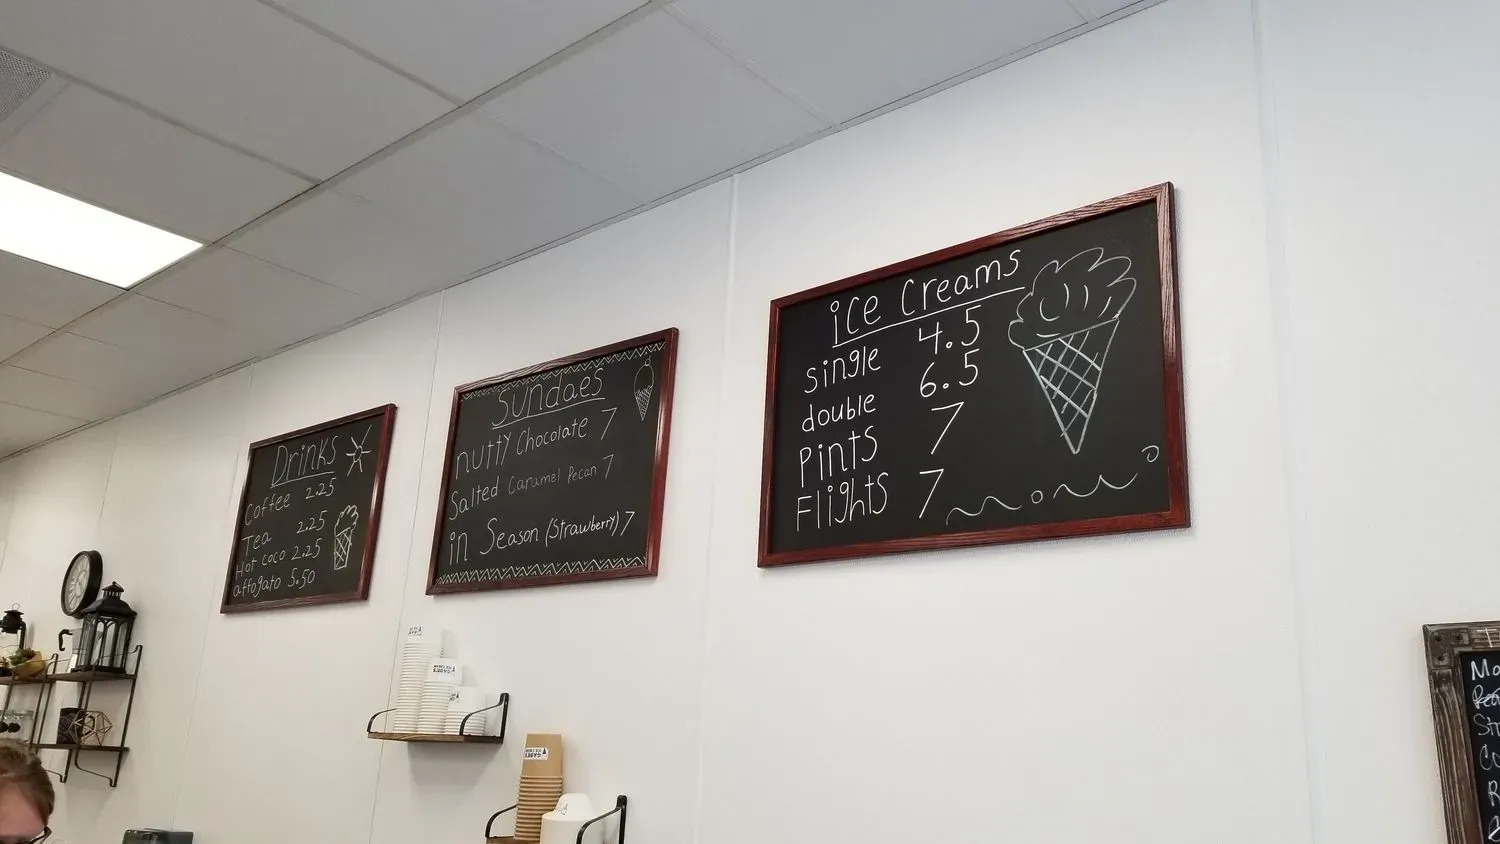 Drinks
Coffee 2.25
Tea 2.25
Hot coco 2.25
affogato 5.50
Sundaes
nutty Chocolate 7
Salted Caramel Pecan 7
in Season (Strawberry) 7
ice Creams
single 4.5
double 6.5
Pints 7
Flights 7